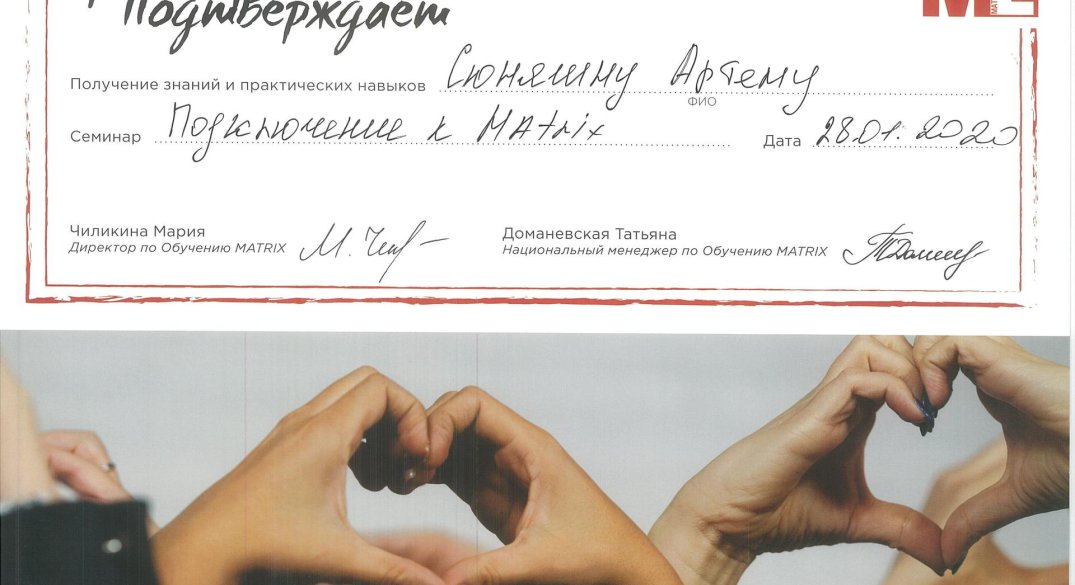 Подтверждает
Получение знаний и практических навыков Сюняшину Артему
ФИО
Семинар Подключение к MAtrix Дата 28.01.2020
Чиликина Мария
Директор по Обучению MATRIX
Доманевская Татьяна
Национальный менеджер по Обучению MATRIX